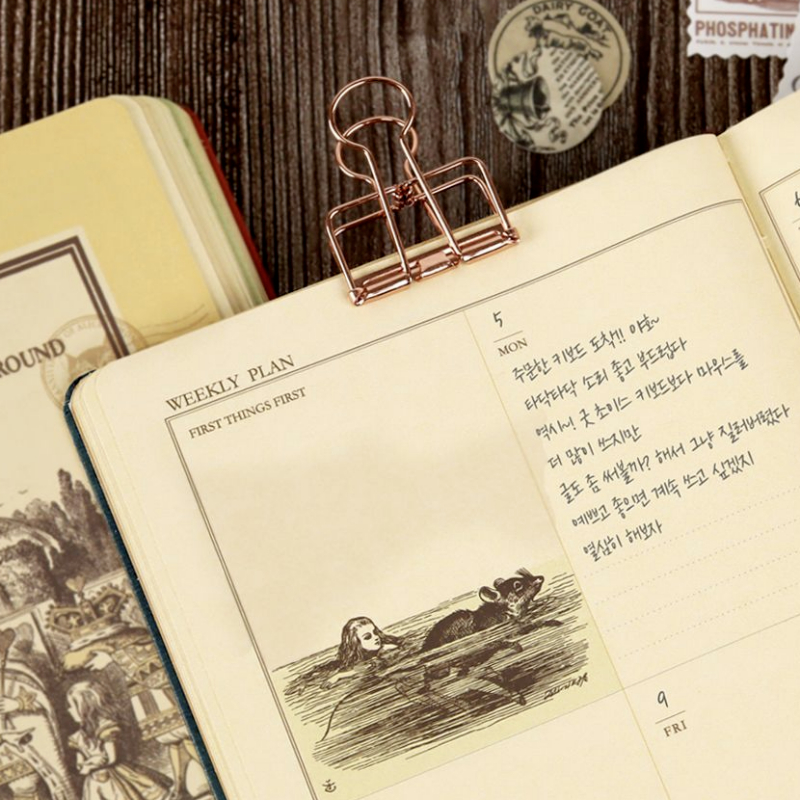 DAIRY GOAT
PHOSPHATIN
ROUND
WEEKLY PLAN
FIRST THINGS FIRST
5
MON
주문한 키보드 도착!! 야호~
타닥타닥 소리 좋고 부드럽다
역시~! 굿 초이스 키보드보다 마우스를
더 많이 쓰지만
글도 좀 써볼까? 해서 그냥 질러버렸다
예쁘고 좋으면 계속 쓰고 싶겠지
열심히 해보자
9
FRI